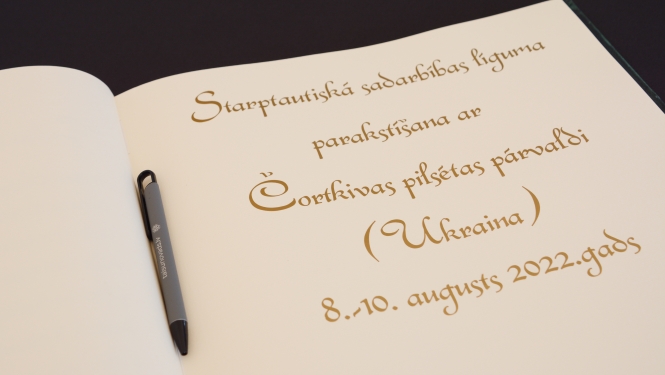 Starptautiská sadarbíbas líguma
parakstíšana ar
Čortkivas pilsétas párvaldi
(Ukraina)
8.-10. augusts 2022.gads